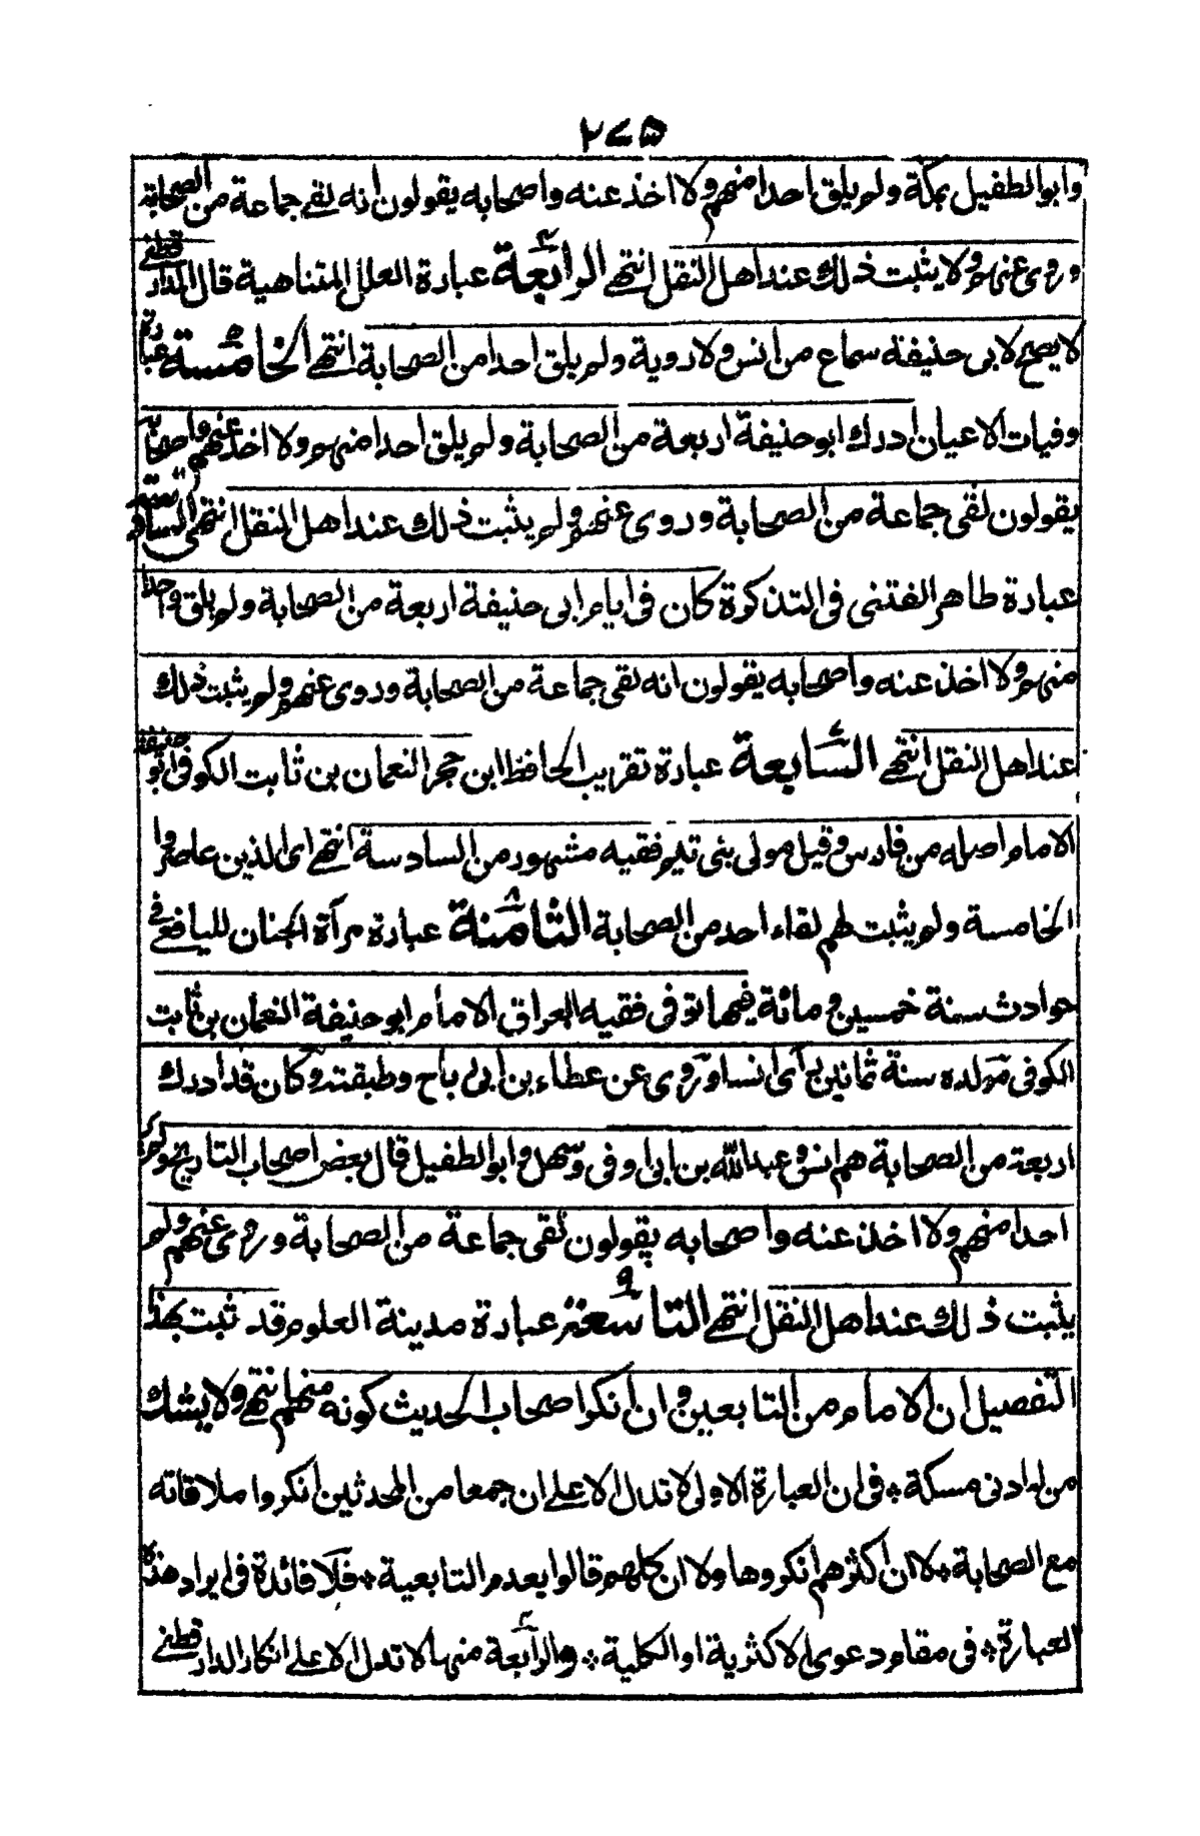 ٢٧٥
وابو الطفيل بمكة ولم يلق احدا منهم ولا اخذ عنه واصحابه يقولون انه لقى جماعة من الصحابة
وروى عنهم ولا يثبت ذلك عند اهل النقل انتهى الرابعة عبارة العلل المتناهية قال الدارقطنى
لا يصح لابى حنيفة سماع من انس ولا روية ولم يلق احدا من الصحابة انتهى الخامسة عبارة
وفيات الاعيان ادرك ابو حنيفة اربعة من الصحابة ولم يلق احدا منهم ولا اخذ عنهم واصحابه
يقولون لقى جماعة من الصحابة وروى عنهم ولم يثبت ذلك عند اهل النقل انتهى السادسة
عبارة طاهر الفتنى فى التذكرة كان فى ايام ابى حنيفة اربعة من الصحابة ولم يلق واحدا
منهم ولا اخذ عنه واصحابه يقولون انه لقى جماعة من الصحابة وروى عنهم ولم يثبت ذلك
عند اهل النقل انتهى السابعة عبارة تقريب الحافظ ابن حجر النعمان بن ثابت الكوفى ابو حنيفة
الامام اصله من فارس وقيل مولى بنى تيم فقيه مشهور من السادسة انتهى اى الذين عاصروا
الخامسة ولم يثبت لهم لقاء احد من الصحابة الثامنة عبارة مرآة الجنان لليافعى فى
حوادث سنة خمسين ومائة فيها توفى فقيه العراق الامام ابو حنيفة النعمان بن ثابت
الكوفى مولده سنة ثمانين رأى انسا وروى عن عطاء بن ابى رباح وطبقته وكان قد ادرك
اربعة من الصحابة هم انس وعبد الله بن ابى اوفى وسهل وابو الطفيل قال بعض اصحاب التاريخ ولم ير
احدا منهم ولا اخذ عنه واصحابه يقولون لقى جماعة من الصحابة وروى عنهم ولم
يثبت ذلك عند اهل النقل انتهى التاسعة عبارة مدينة العلوم قد ثبت بهذا
التفصيل ان الامام من التابعين وان انكر اصحاب الحديث كونه منهم انتهى ولا يشك
من له ادنى مسكة * فى ان العبارة الاولى لا تدل الا على ان جمعا من المحدثين انكروا ملاقاته
مع الصحابة * لا ان اكثرهم انكروها ولا ان كلهم قالوا بعدم التابعية * فلا فائدة فى ايراد هذه
العبارة * فى مقام دعوى الاكثرية او الكلية * والرابعة منها لا تدل الا على انكار الدارقطنى